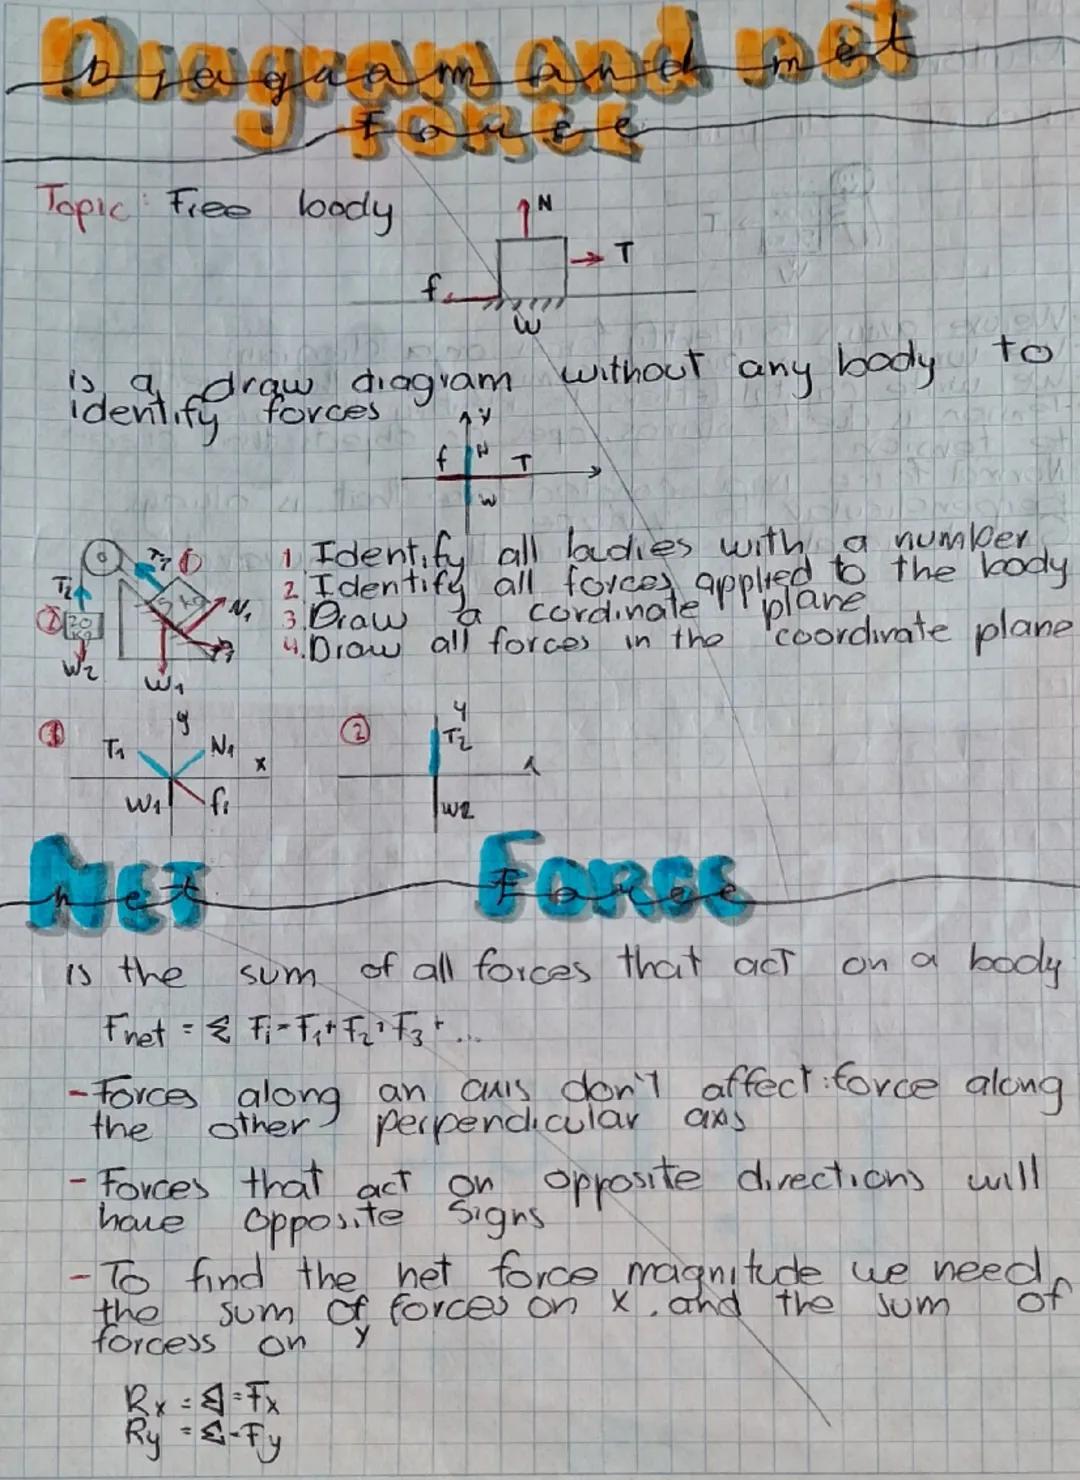 Diagram and net
force
Topic: Free body
N
T
f
W
is a draw diagram without any body to
identify forces
y
f N T
W
1. Identify all bodies with a number
2. Identify all forces applied to the body
3. Draw a cordinate plane
4. Draw all forces in the coordinate plane
T2
1
2
20
kg
N1
W2
W1
1
y
T1 N1 x
W1 f1
2
y
T2
W2
Net Force
is the sum of all forces that act on a body
Fnet = Σ Fi = F1 + F2 + F3 + ...
- Forces along an axis don't affect force along
the other perpendicular axis
- Forces that act on opposite directions will
have opposite signs
- To find the net force magnitude we need
the sum of forces on x. and the sum of
forcess on y
Rx = Σ = Fx
Ry = Σ - Fy